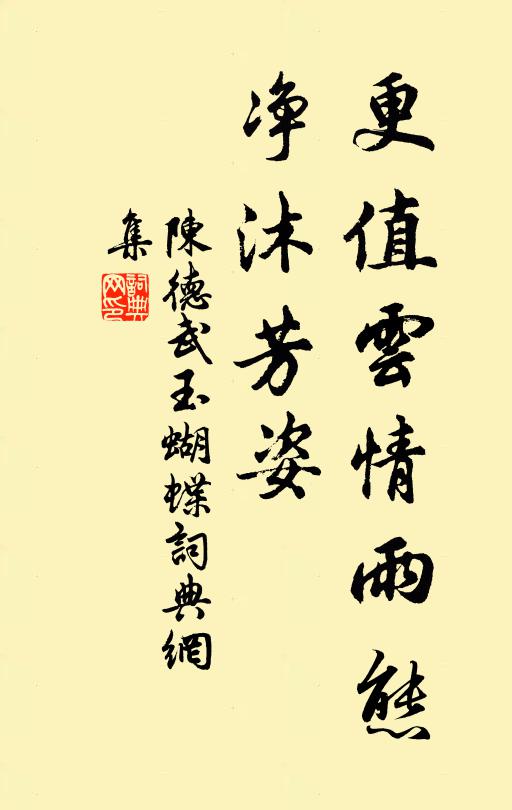 更值雲情雨態
净沐芳姿
陳德武玉蝴蝶詞典網
集
詞典
网印